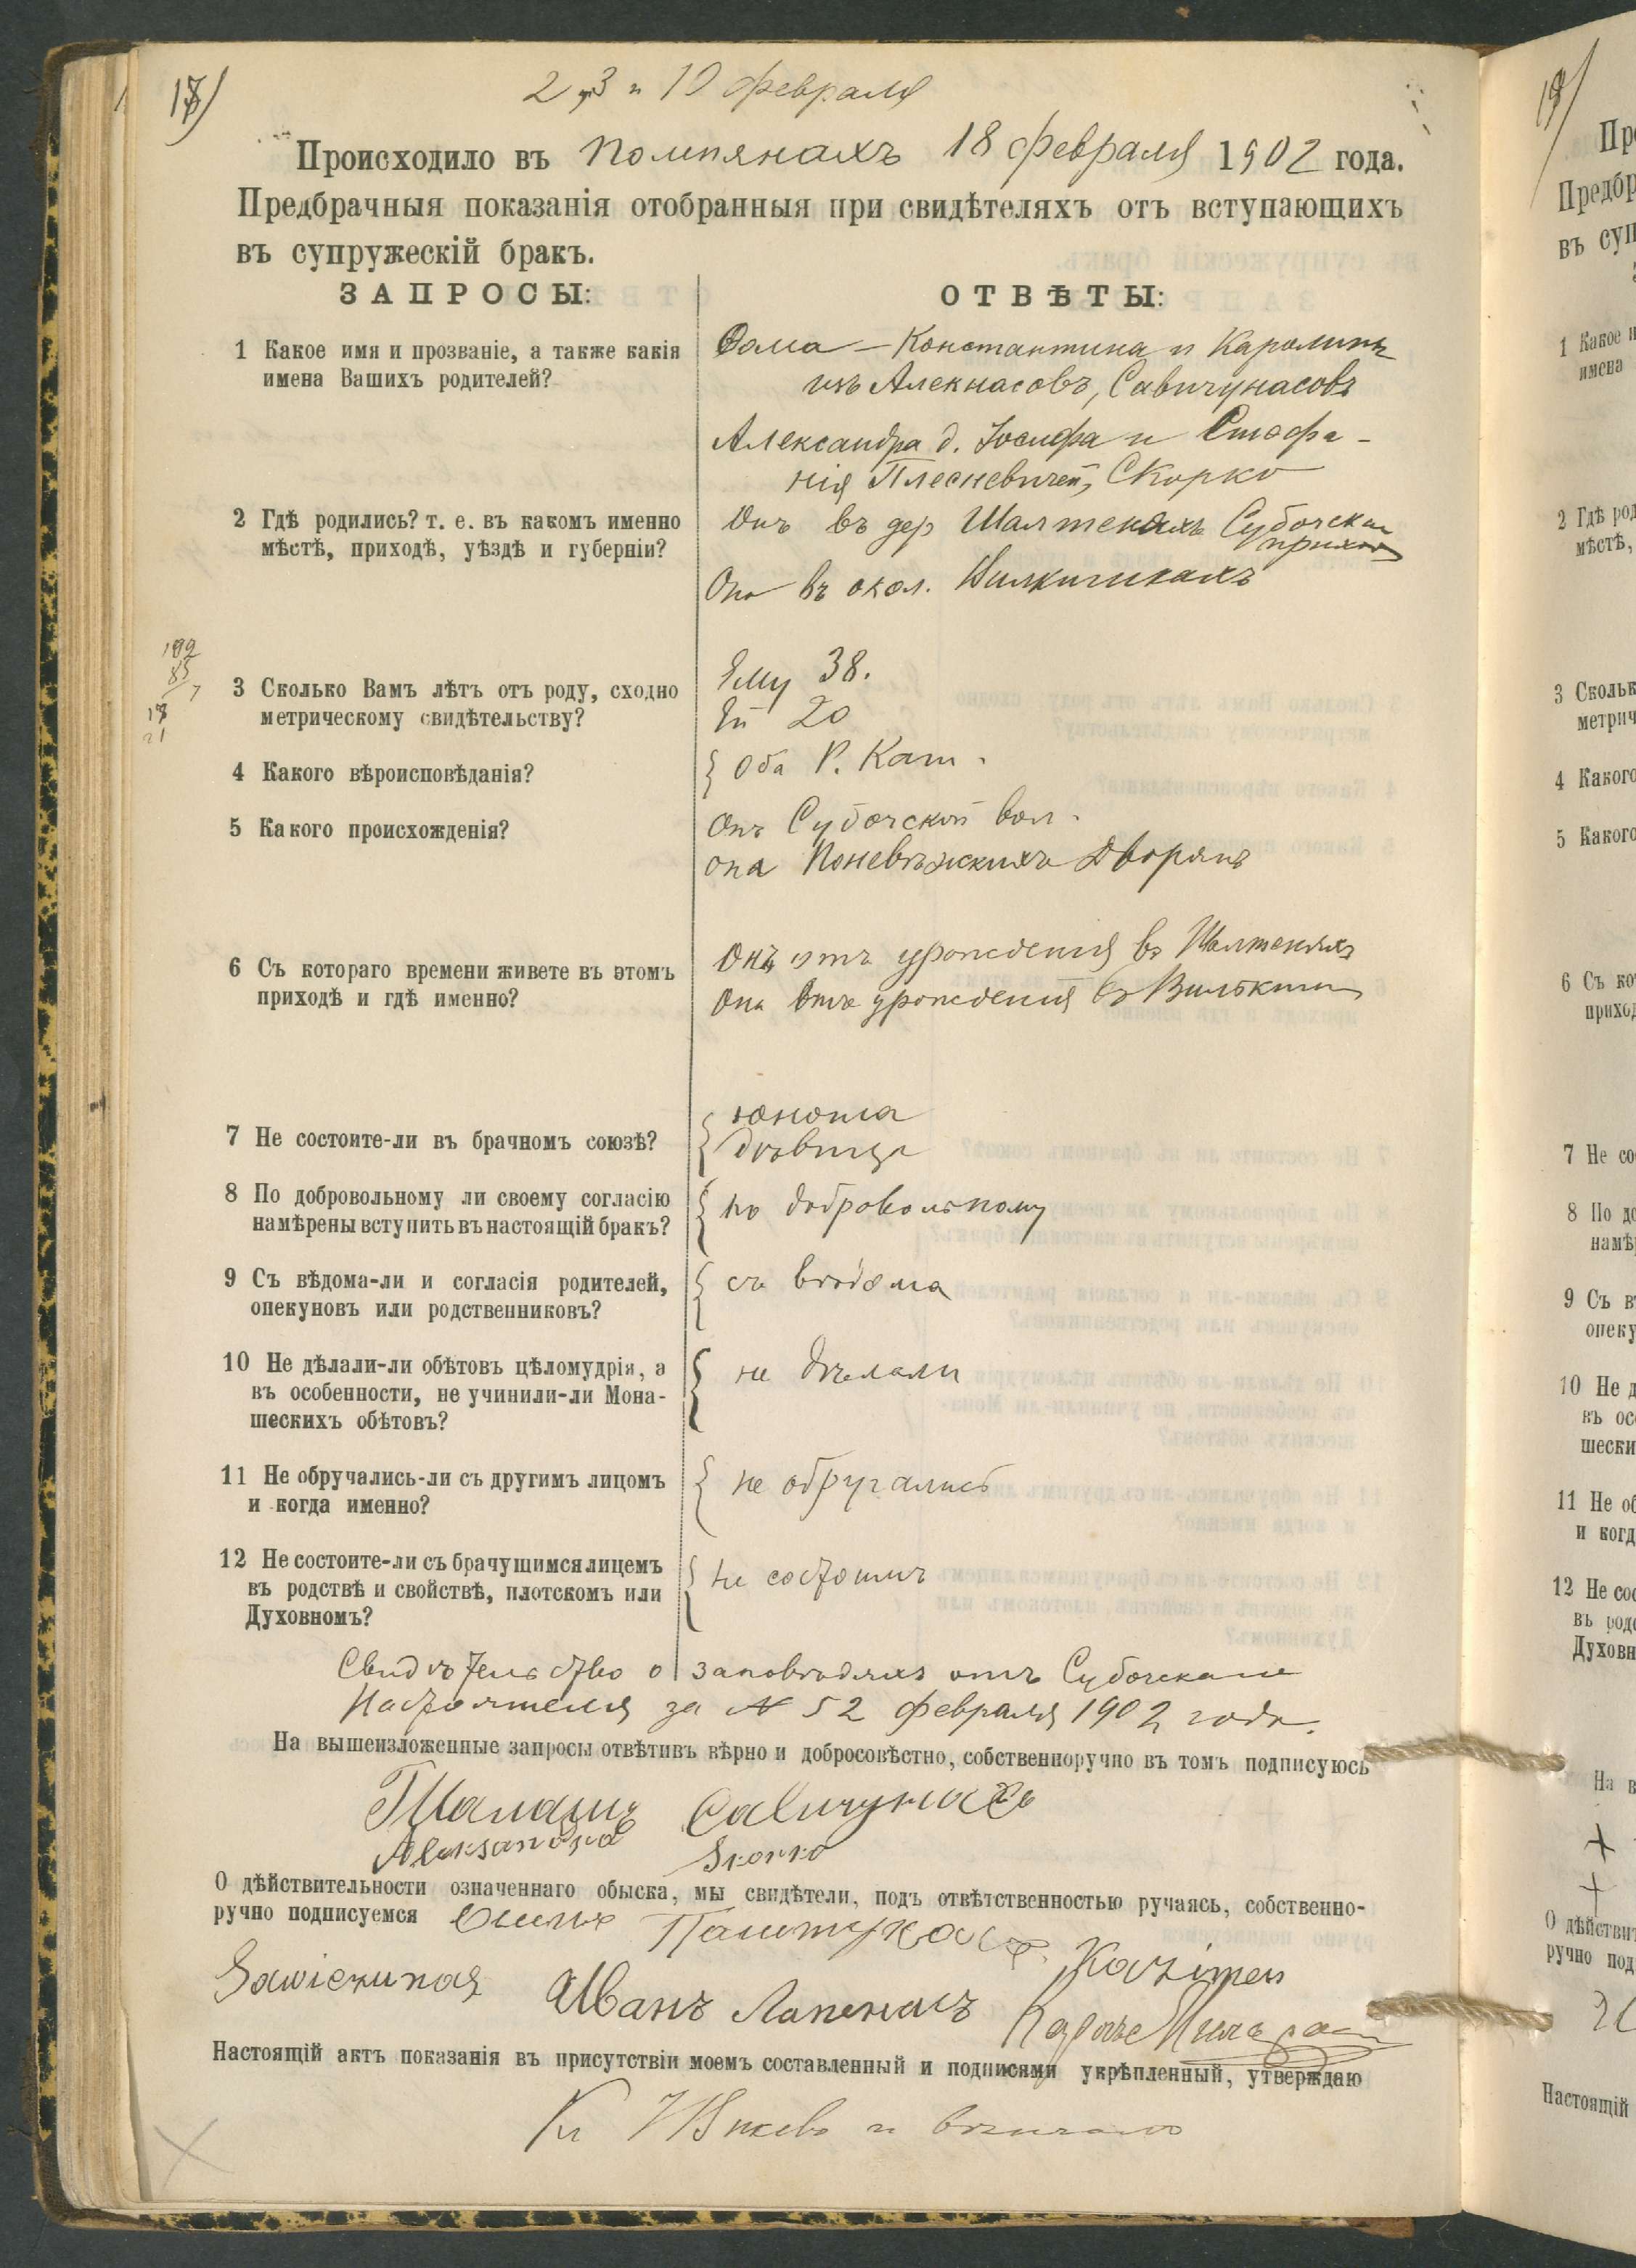 17)
2, 3 и 10 февраля
Происходило въ Помпянахъ 18 февраля 1902 года.
Предбрачныя показанія отобранныя при свидѣтеляхъ отъ вступающихъ
въ супружескій бракъ.
ЗАПРОСЫ:
ОТВѢТЫ:
1 Какое имя и прозваніе, а также какія
имена Вашихъ родителей?
Ѳома – Константина и Каролины
изъ Алекнасовъ, Савичунасовъ
Александра д. Іосифа и Стефа-
нія Плесневичей, Скорко
2 Гдѣ родились? т. е. въ какомъ именно
мѣстѣ, приходѣ, уѣздѣ и губерніи?
Онъ въ дер Шалтеняхъ Субочскаго
прихода
Она въ окол.
3 Сколько Вамъ лѣтъ отъ роду, сходно
метрическому свидѣтельству?
Ему 38.
Ей 20
4 Какого вѣроисповѣданія?
Оба Р. Кат.
5 Какого происхожденія?
Онъ Субочской вол.
она Поневѣжскихъ Дворянъ
6 Съ котораго времени живете въ этомъ
приходѣ и гдѣ именно?
Онъ отъ урожденія въ Шалтеняхъ
Она отъ урожденія въ
7 Не состоите-ли въ брачномъ союзѣ?
юноша
дѣвица
8 По добровольному ли своему согласію
намѣрены вступить въ настоящій бракъ?
по добровольному
9 Съ вѣдома-ли и согласія родителей,
опекуновъ или родственниковъ?
съ вѣдома
10 Не дѣлали-ли обѣтовъ цѣломудрія, а
въ особенности, не учинили-ли Мона-
шескихъ обѣтовъ?
не дѣлали
11 Не обручались-ли съ другимъ лицомъ
и когда именно?
не обручались
12 Не состоите-ли съ брачущимся лицемъ
въ родствѣ и свойствѣ, плотскомъ или
Духовномъ?
не состоимъ
Свидѣтельство о заповѣдяхъ отъ Субочскаго
Настоятеля за № 52 февраля 1902 года.
На вышеизложенные запросы отвѣтивъ вѣрно и добросовѣстно, собственноручно въ томъ подписуюсь
Савичунасъ
Aleksandra Skorko
О дѣйствительности означеннаго обыска, мы свидѣтели, подъ отвѣтственностью ручаясь, собственно-
ручно подписуемся
Иванъ Лапенасъ
Настоящій актъ показанія въ присутствіи моемъ составленный и подписями укрѣпленный, утверждаю